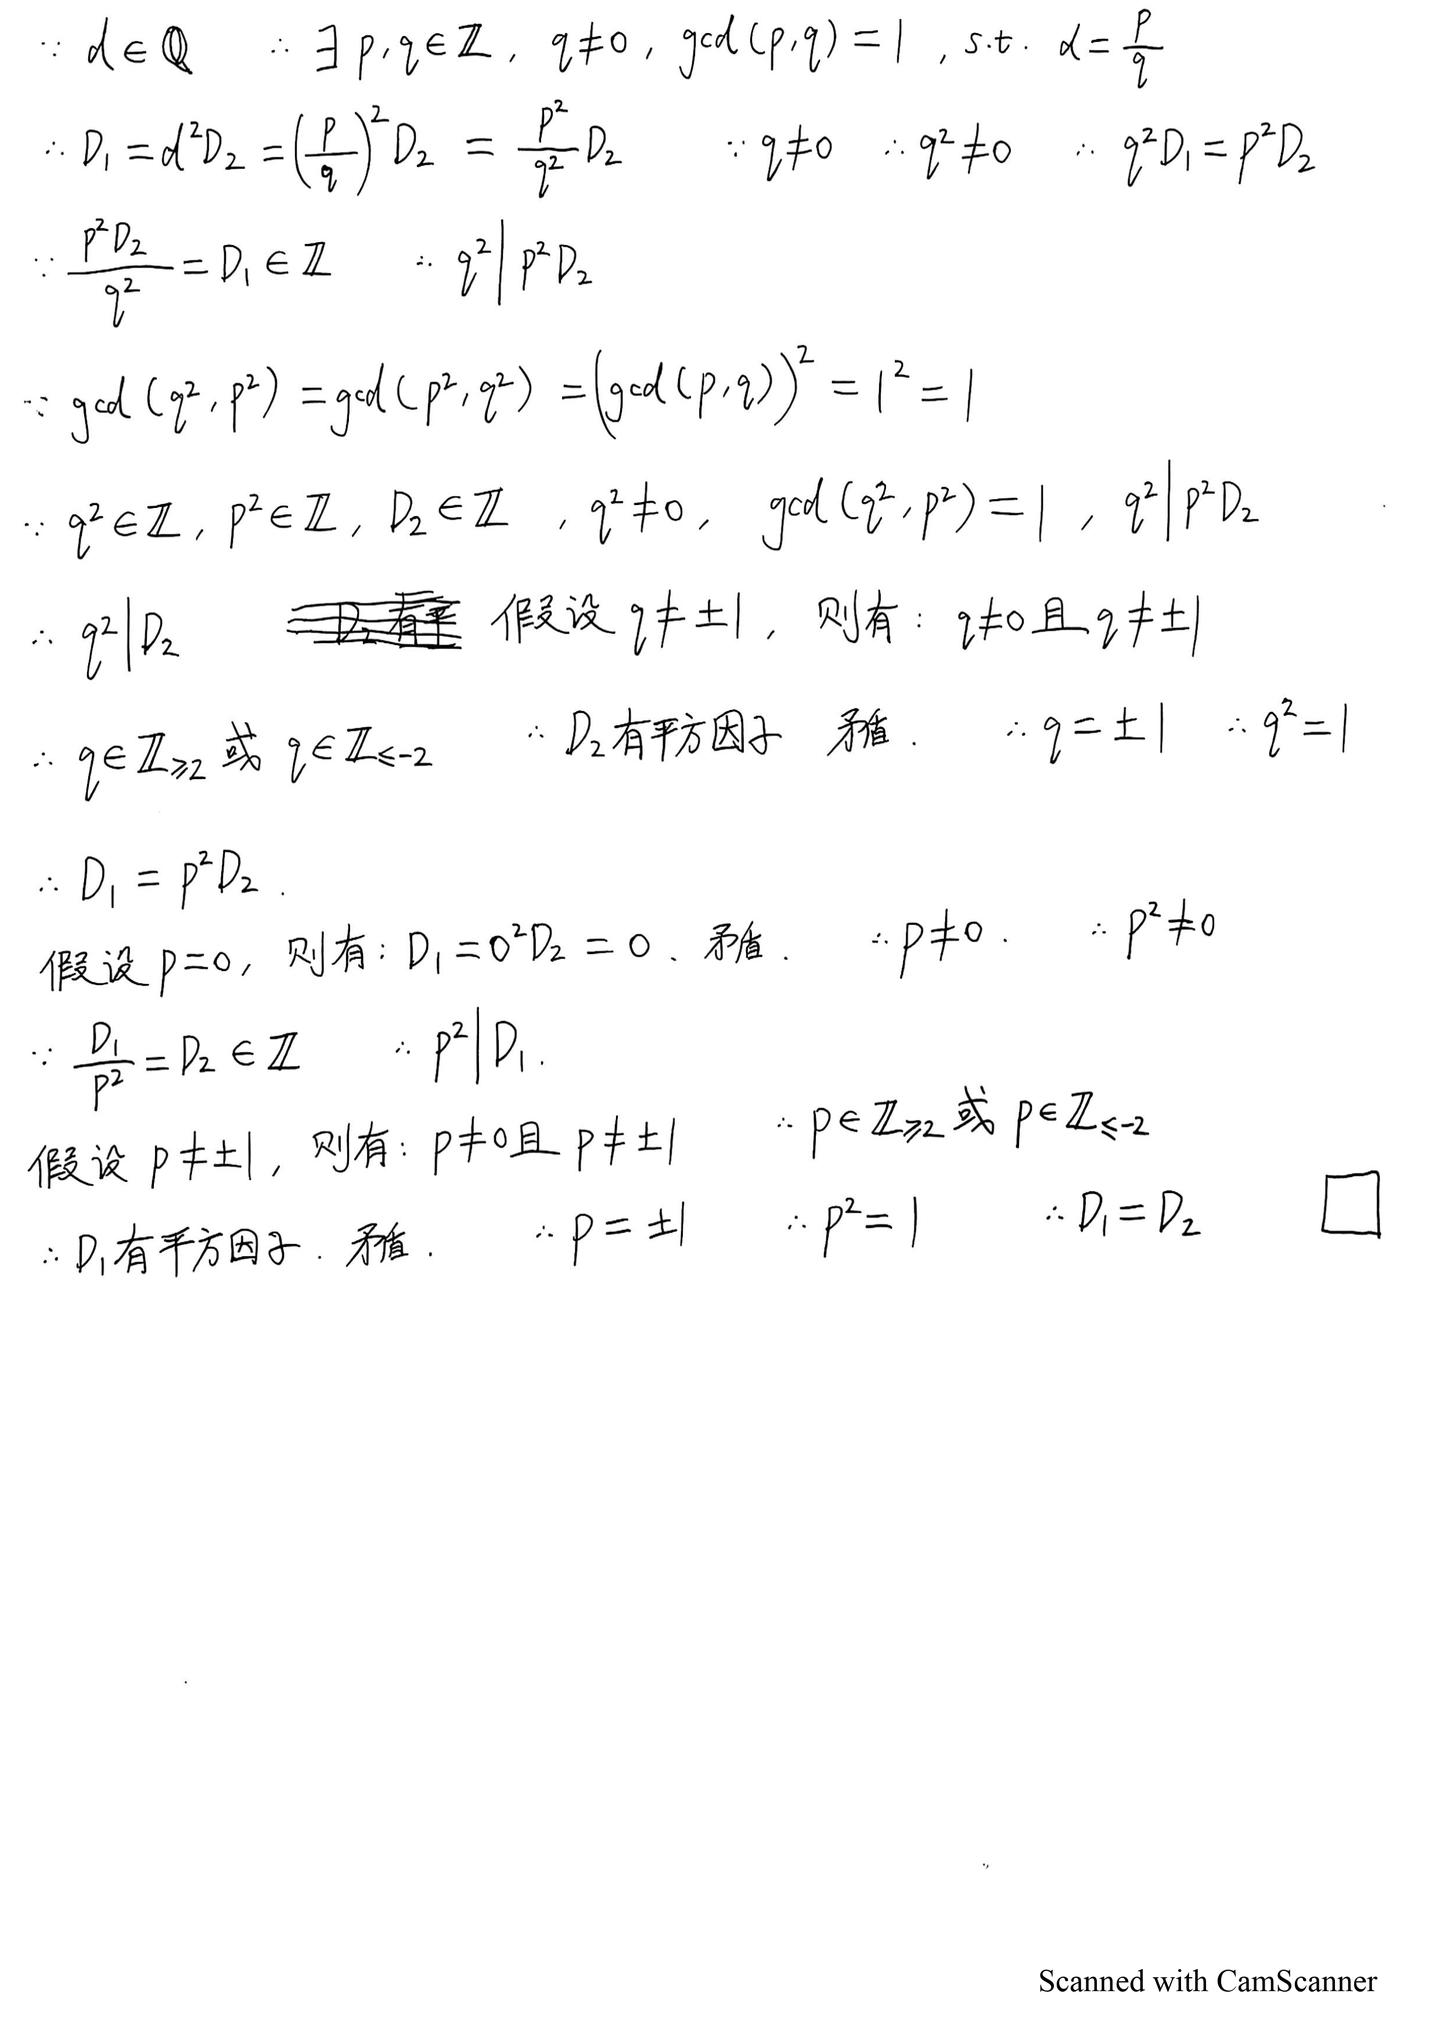 ∵ d∈ℚ ∴ ∃ p,q∈ℤ, q≠0, gcd(p,q)=1, s.t. d=p/q
∴ D₁=d²D₂=(p/q)²D₂ = p²/q² D₂ ∵ q≠0 ∴ q²≠0 ∴ q²D₁=p²D₂
∵ p²D₂/q² = D₁∈ℤ ∴ q²|p²D₂
∵ gcd(q²,p²)=gcd(p²,q²)=(gcd(p,q))²=1²=1
∵ q²∈ℤ, p²∈ℤ, D₂∈ℤ, q²≠0, gcd(q²,p²)=1, q²|p²D₂
∴ q²|D₂ 假设 q≠±1, 则有: q≠0且q≠±1
∴ q∈ℤ≥2 或 q∈ℤ≤-2 ∴ D₂有平方因子 矛盾. ∴ q=±1 ∴ q²=1
∴ D₁=p²D₂.
假设 p=0, 则有: D₁=0²D₂=0. 矛盾. ∴ p≠0. ∴ p²≠0
∵ D₁/p²=D₂∈ℤ ∴ p²|D₁.
假设 p≠±1, 则有: p≠0且 p≠±1 ∴ p∈ℤ≥2 或 p∈ℤ≤-2
∴ D₁有平方因子. 矛盾. ∴ p=±1 ∴ p²=1 ∴ D₁=D₂ □
Scanned with CamScanner